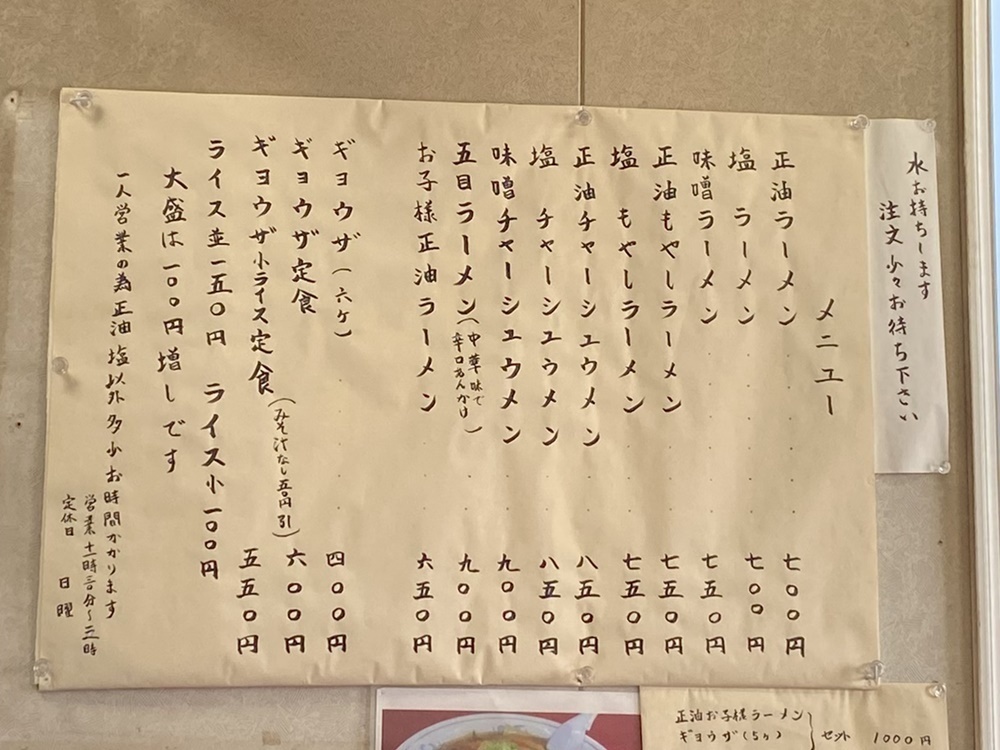 水お持ちします
注文少々お待ち下さい
メニユー
正油ラーメン 七〇〇円
塩 ラーメン 七〇〇円
味噌ラーメン 七五〇円
正油もやしラーメン 七五〇円
塩 もやしラーメン 七五〇円
正油チャーシュウメン 八五〇円
塩 チャーシュウメン 八五〇円
味噌チャーシュウメン 九〇〇円
五目ラーメン(中華味で辛口あんかけ) 九〇〇円
お子様正油ラーメン 六五〇円
ギョウザ(六ケ) 四〇〇円
ギョウザ定食 六〇〇円
ギョウザ小ライス定食(みそ汁なし五〇円引) 五五〇円
ライス並一五〇円 ライス小一〇〇円
大盛は一〇〇円増しです
一人営業の為正油塩以外多少お時間かかります
営業十一時三〇分〜三時
定休日 日曜
正油お子様ラーメン
ギョウザ(5ケ)
セット 1000円